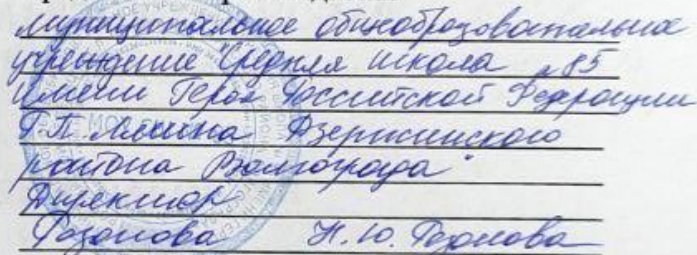 муниципальное общеобразовательное
учреждение "Средняя школа № 85
имени Героя Российской Федерации
Г.П. Лячина Дзержинского
района Волгограда"
Директор
Н.Ю.